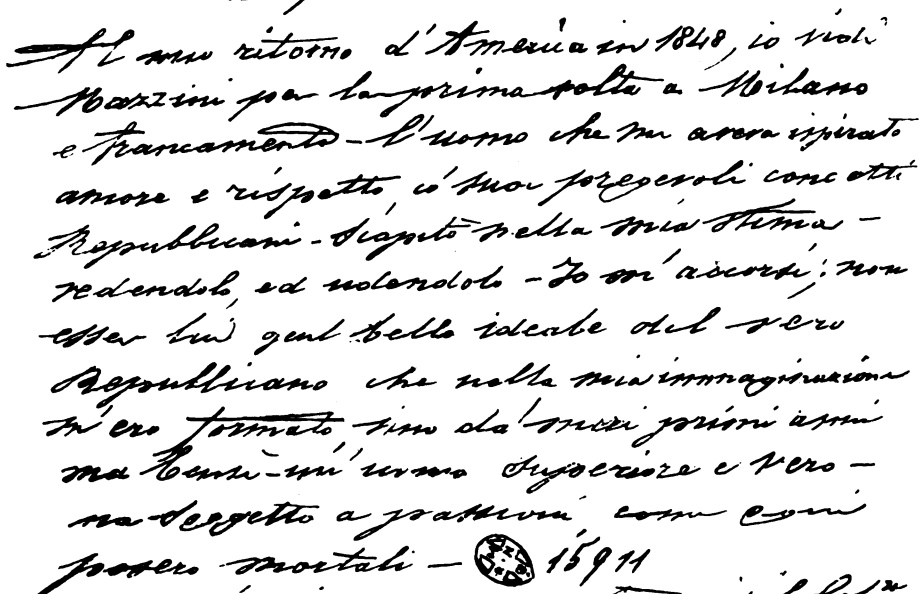 Al mio ritorno d'America in 1848, io vidi
Mazzini per la prima volta a Milano
e francamente - l'uomo che mi aveva ispirato
amore e rispetto, co' suoi pregevoli concetti
Repubblicani - Scapitò nella mia stima -
vedendolo, ed udendolo - Io m'accorsi; non
esser lui quel bello ideale del vero
Repubblicano che nella mia immaginazione
m'ero formato, sino da' miei primi anni
ma bensì - un' uomo superiore e vero -
ma soggetto a passioni, come ogni
povero mortali - 15911